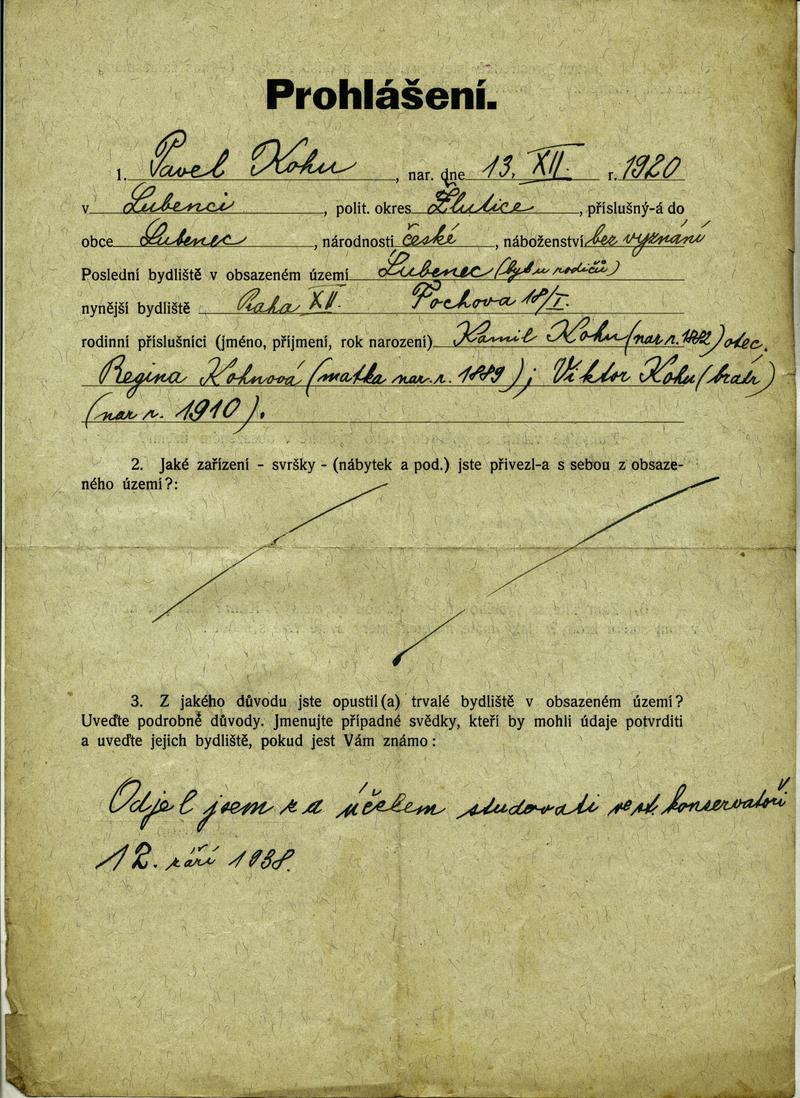 Prohlášení.
1. Pavel Kohn, nar. dne 13. XII. r. 1920
v Lubenci, polit. okres Žlutice, příslušný-á do
obce Lubenec, národnosti české, náboženství bez vyznání
Poslední bydliště v obsazeném území Lubenec (byt u rodičů)
nynější bydliště Praha XII. Fochova 18/I.
rodinní příslušníci (jméno, příjmení, rok narození) Kamil Kohn (nar. r. 1882) otec,
Regina Kohnová (matka nar. r. 1889); Viktor Kohn (bratr)
(nar. r. 1910).
2. Jaké zařízení - svršky - (nábytek a pod.) jste přivezl-a s sebou z obsaze-
ného území?:
3. Z jakého důvodu jste opustil(a) trvalé bydliště v obsazeném území?
Uveďte podrobně důvody. Jmenujte případné svědky, kteří by mohli údaje potvrditi
a uveďte jejich bydliště, pokud jest Vám známo:
Odjel jsem za účelem studovati konservatoři
12. září 1938.